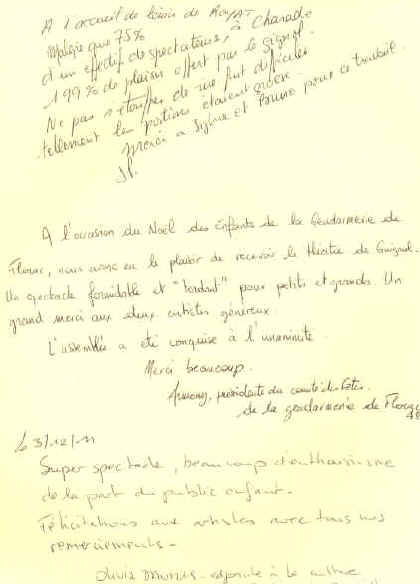 A l'accueil de loisir de Royat à Charade
Malgré que 75%
d'un effectif de spectateurs,
199% de plaisir offert par le Guignol.
Ne pas s'étouffer de rire fut difficile
tellement les portions étaient
Merci à et Bruno pour ce travail.
A l'occasion du Noël des enfants de la Gendarmerie de
Florac, nous avons eu le plaisir de recevoir le théâtre de Guignol.
Un spectacle formidable et "tordant" pour petits et grands. Un
grand merci aux deux artistes généreux.
L'assemblée a été conquise à l'unanimité.
Merci beaucoup.
présidente du comité des fêtes
de la gendarmerie de Florac
Le 3/12/11
Super spectacle, beaucoup d'enthousiasme
de la part du public enfant.
Félicitations aux artistes avec tous nos
remerciements.
adjointe à la culture